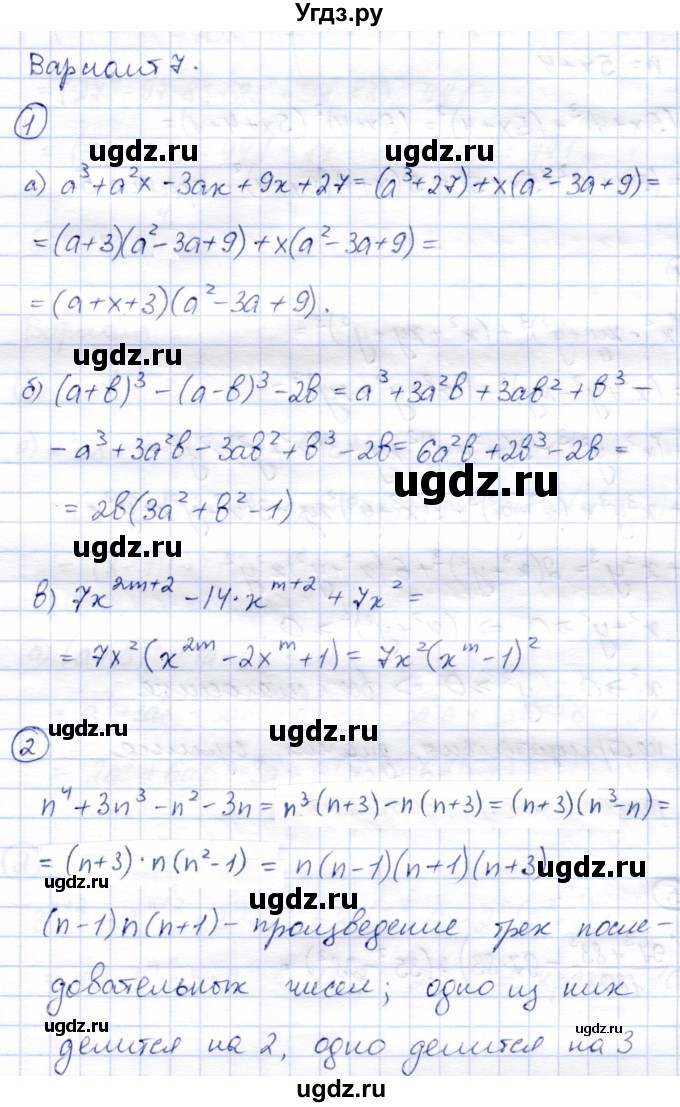 Угдз.ру
Вариант 7.
1
ugdz.ru ugdz.ru
а) a³+a²x-3ax+9x+27=(a³+27)+x(a²-3a+9)=
=(a+3)(a²-3a+9)+x(a²-3a+9)=
=(a+x+3)(a²-3a+9).
ugdz.ru
б) (a+b)³-(a-b)³-2b=a³+3a²b+3ab²+b³-
-a³+3a²b-3ab²+b³-2b=6a²b+2b³-2b=
ugdz.ru
=2b(3a²+b²-1)
ugdz.ru
в) 7x²ᵐ⁺²-14·xᵐ⁺²+7x²=
=7x²(x²ᵐ-2xᵐ+1)=7x²(xᵐ-1)²
ugdz.ru ugdz.ru
2
n⁴+3n³-n²-3n=n³(n+3)-n(n+3)=(n+3)(n³-n)=
=(n+3)·n(n²-1)=n(n-1)(n+1)(n+3)
ugdz.ru
ugdz.ru
(n-1)n(n+1)-произведение трех после-
довательных чисел; одно из них
ugdz.ru ugdz.ru
делится на 2, одно делится на 3
ugdz.ru